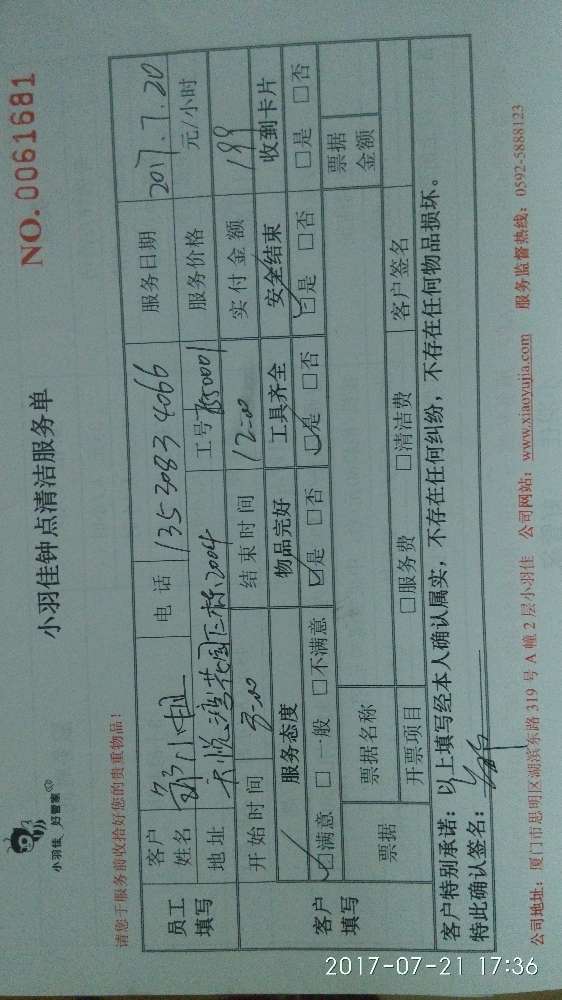 小羽佳 好管家
小羽佳钟点清洁服务单
NO.0061681
请您于服务前收拾好您的贵重物品!
员工填写
客户姓名
电话 13530834066
服务日期 2017.7.20
地址 2004
工号
服务价格 元/小时
客户填写
开始时间
结束时间 12:00
实付金额 199
服务态度 物品完好 工具齐全 安全结束 收到卡片
☑满意 □一般 □不满意 ☑是 □否 ☑是 □否 ☑是 □否 □是 □否
票据 票据名称 票据金额
开票项目 □服务费 □清洁费 客户签名
客户特别承诺:以上填写经本人确认属实,不存在任何纠纷,不存在任何物品损坏。
特此确认签名:
公司地址:厦门市思明区湖滨东路319号A幢2层小羽佳 公司网站:www.xiaoyujia.com 服务监督热线:0592-5888123
2017-07-21 17:36